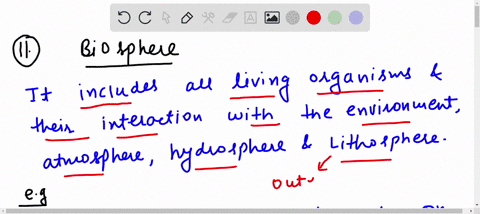 11. Biosphere
It includes all living organisms &
their interaction with the environment,
atmosphere, hydrosphere & Lithosphere.
out
e.g